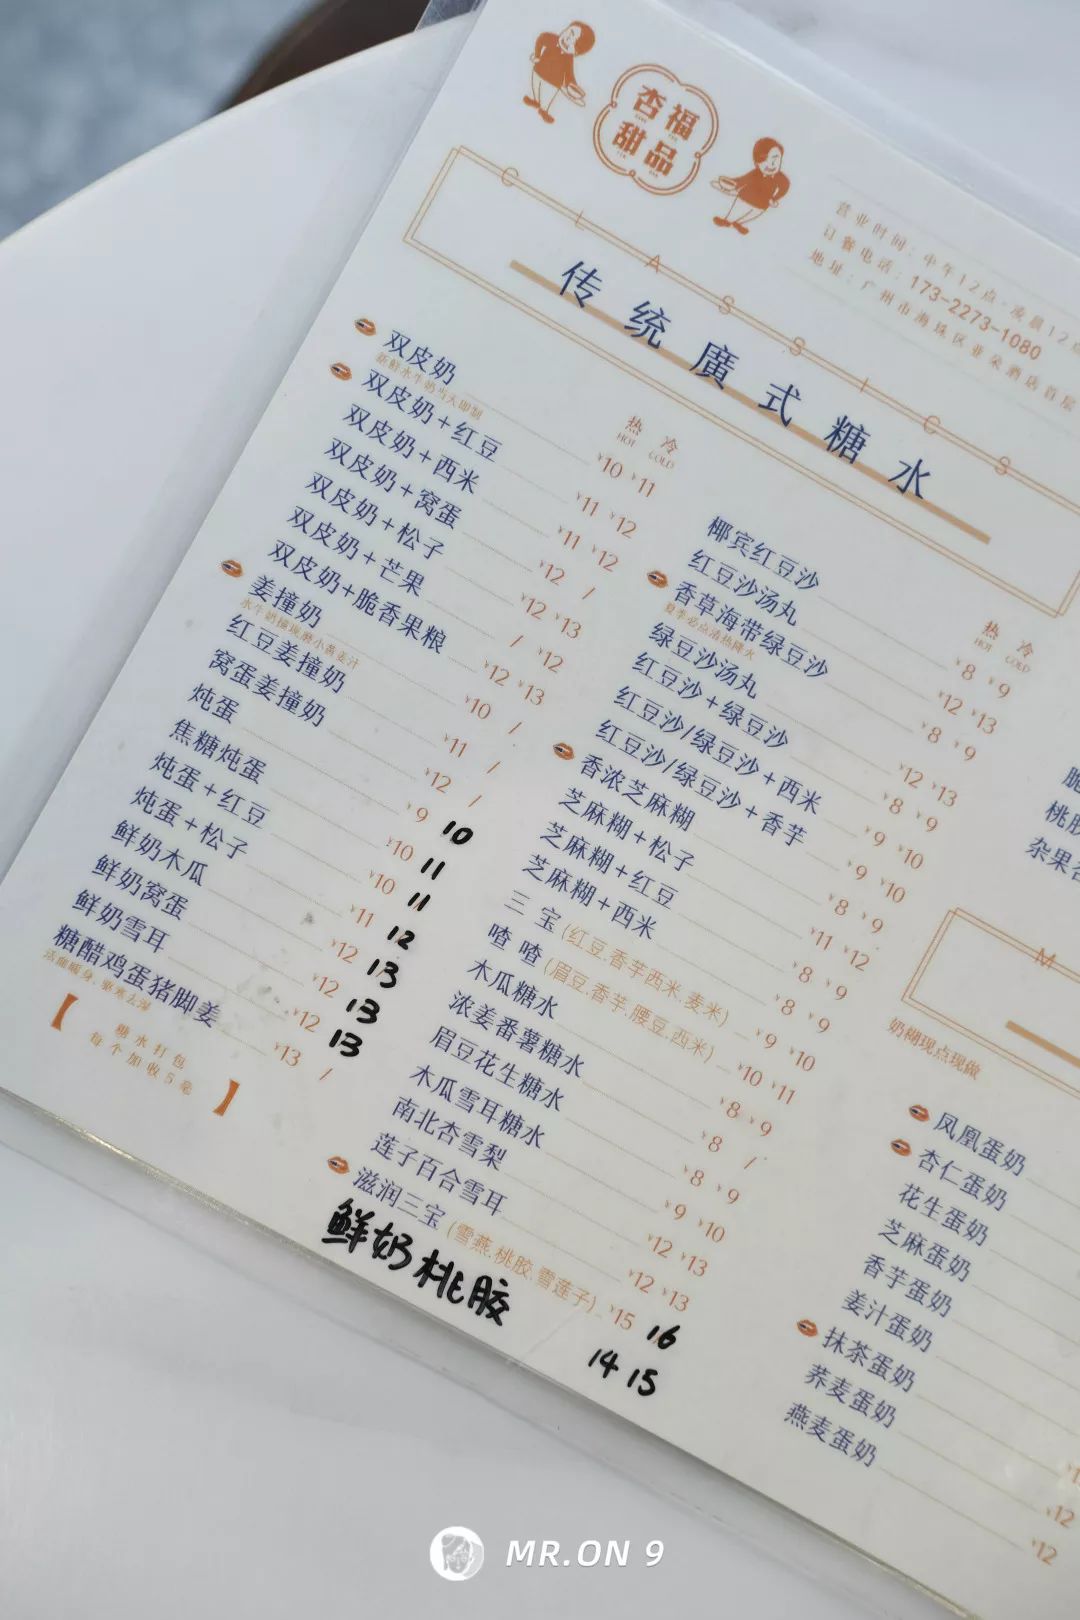 杏福
甜品
营业时间：中午12点-凌晨12点
订餐电话：173-2273-1080
地址：广州市海珠区亚朵酒店首层
CLASSICS
传统廣式糖水
热 冷
HOT COLD
双皮奶 ¥10 ¥11
新鲜水牛奶当天即制
双皮奶+红豆 ¥11 ¥12
双皮奶+西米 ¥11 ¥12
双皮奶+窝蛋 ¥12 /
双皮奶+松子 ¥12 ¥13
双皮奶+芒果 / ¥12
双皮奶+脆香果粮 ¥12 ¥13
姜撞奶 ¥10 /
水牛奶撞现磨小黄姜汁
红豆姜撞奶 ¥11 /
窝蛋姜撞奶 ¥12 /
炖蛋 ¥9 10
焦糖炖蛋 ¥10 11
炖蛋+红豆 ¥10 11
炖蛋+松子 ¥11 12
鲜奶木瓜 ¥12 13
鲜奶窝蛋 ¥12 13
鲜奶雪耳 ¥12 13
糖醋鸡蛋猪脚姜 ¥13 /
活血暖身，驱寒去湿
【糖水打包
每个加收5毫】
热 冷
HOT COLD
椰宾红豆沙 ¥8 ¥9
红豆沙汤丸 ¥12 ¥13
香草海带绿豆沙 ¥8 ¥9
夏季必点清热降火
绿豆沙汤丸 ¥12 ¥13
红豆沙+绿豆沙 ¥8 ¥9
红豆沙/绿豆沙+西米 ¥9 ¥10
红豆沙/绿豆沙+香芋 ¥9 ¥10
香浓芝麻糊 ¥8 ¥9
芝麻糊+松子 ¥11 ¥12
芝麻糊+红豆 ¥8 ¥9
芝麻糊+西米 ¥8 ¥9
三宝(红豆.香芋西米.麦米) ¥9 ¥10
喳喳(眉豆.香芋.腰豆.西米) ¥10 ¥11
木瓜糖水 ¥8 ¥9
浓姜番薯糖水 ¥8 /
眉豆花生糖水 ¥8 ¥9
木瓜雪耳糖水 ¥9 ¥10
南北杏雪梨 ¥12 ¥13
莲子百合雪耳 ¥12 ¥13
滋润三宝(雪燕.桃胶.雪莲子) ¥15 16
鲜奶桃胶 14 15
桃胶
杂果
M
奶糊现点现做
凤凰蛋奶
杏仁蛋奶
花生蛋奶
芝麻蛋奶
香芋蛋奶
姜汁蛋奶
抹茶蛋奶
荞麦蛋奶 ¥12
燕麦蛋奶 ¥12
MR.ON 9